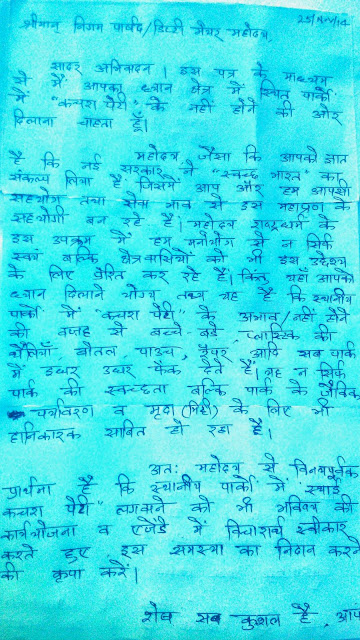 25/Nov/14
श्रीमान् निगम पार्षद/डिप्टी मेयर महोदय,
सादर अभिवादन। इस पत्र के माध्यम
से मैं आपका ध्यान क्षेत्र में स्थित पार्कों
में "कचरा पेटी" के नहीं होने की ओर
दिलाना चाहता हूँ।
महोदय जैसा कि आपको ज्ञात
है कि नई सरकार ने "स्वच्छ भारत" का
संकल्प लिया है जिसमें आप और हम आपसी
सहयोग तथा सेवा भाव से इस महाप्रण के
सहयोगी बन रहे हैं। महोदय राष्ट्रधर्म के
इस उपक्रम में हम मनोयोग से न सिर्फ
स्वयं बल्कि क्षेत्रवासियों को भी इस उद्देश्य
के लिए प्रेरित कर रहे हैं। किंतु यहाँ आपको
ध्यान दिलाने योग्य तथ्य यह है कि स्थानीय
पार्कों में "कचरा पेटी" के अभाव/नहीं होने
की वजह से बच्चे-बडे, प्लास्टिक की
थैलियाँ, बोतल, पाउच, पेपर आदि सब पार्क
में इधर उधर फेंक देते हैं। यह न सिर्फ
पार्क की स्वच्छता बल्कि पार्क के जैविक
पर्यावरण व मृदा (मिट्टी) के लिए भी
हानिकारक साबित हो रहा है।
अतः महोदय से विनयपूर्वक
प्रार्थना है कि स्थानीय पार्कों में "स्थाई
कचरा पेटी" लगवाने को भी भविष्य की
कार्ययोजना व एजेंडे में विचारार्थ स्वीकार
करते हुए इस समस्या का निदान करने
की कृपा करें।
शेष सब कुशल है, आप